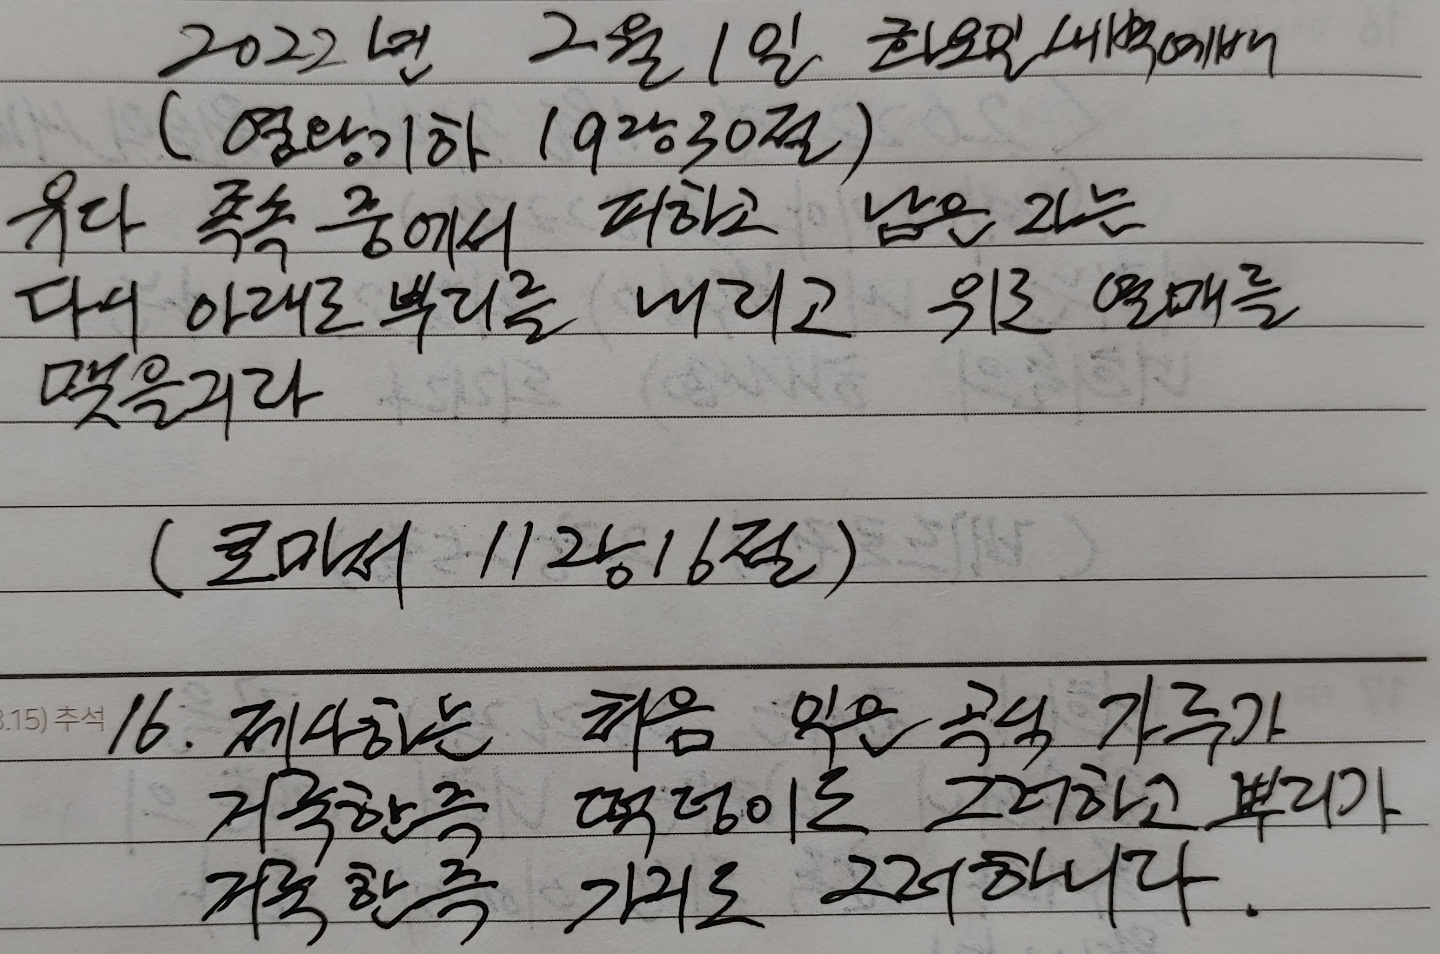 2022년 2월 1일 화요일 새벽예배
(열왕기하 19장30절)
유다 족속 중에서 피하고 남은 자는
다시 아래로 뿌리를 내리고 위로 열매를
맺을지라
(로마서 11장16절)
3.15) 추석
16. 제사하는 처음 익은 곡식 가루가
거룩한즉 떡덩이도 그러하고 뿌리가
거룩한즉 가지도 그러하니라.